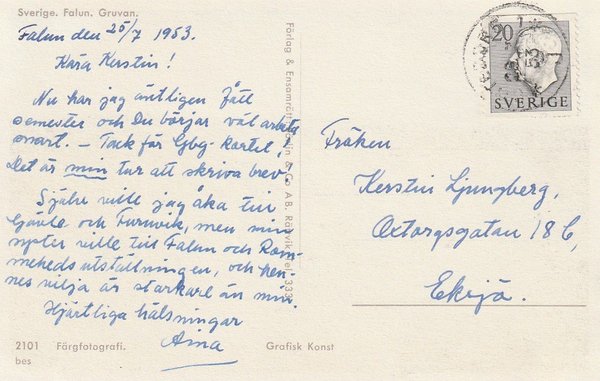 Sverige. Falun. Gruvan.
Falun den 25/7 1953.
Kära Kerstin!
Nu har jag äntligen fått
semester och Du börjar väl arbeta
snart. – Tack för Gbg-kortet,
Det är min tur att skriva brev.
Själv ville jag åka till
Gävle och Furuvik, men min
syster ville till Falun och Rom-
mehedsutställningen, och hen-
nes vilja är starkare än min.
Hjärtliga hälsningar
Aina
2101 Färgfotografi.
bes
Grafisk Konst
Förlag & Ensamrätt: & Co A.B.
20
SVERIGE
Fröken
Kerstin Ljungberg,
Oxtorgsgatan 18 C,
Eksjö.